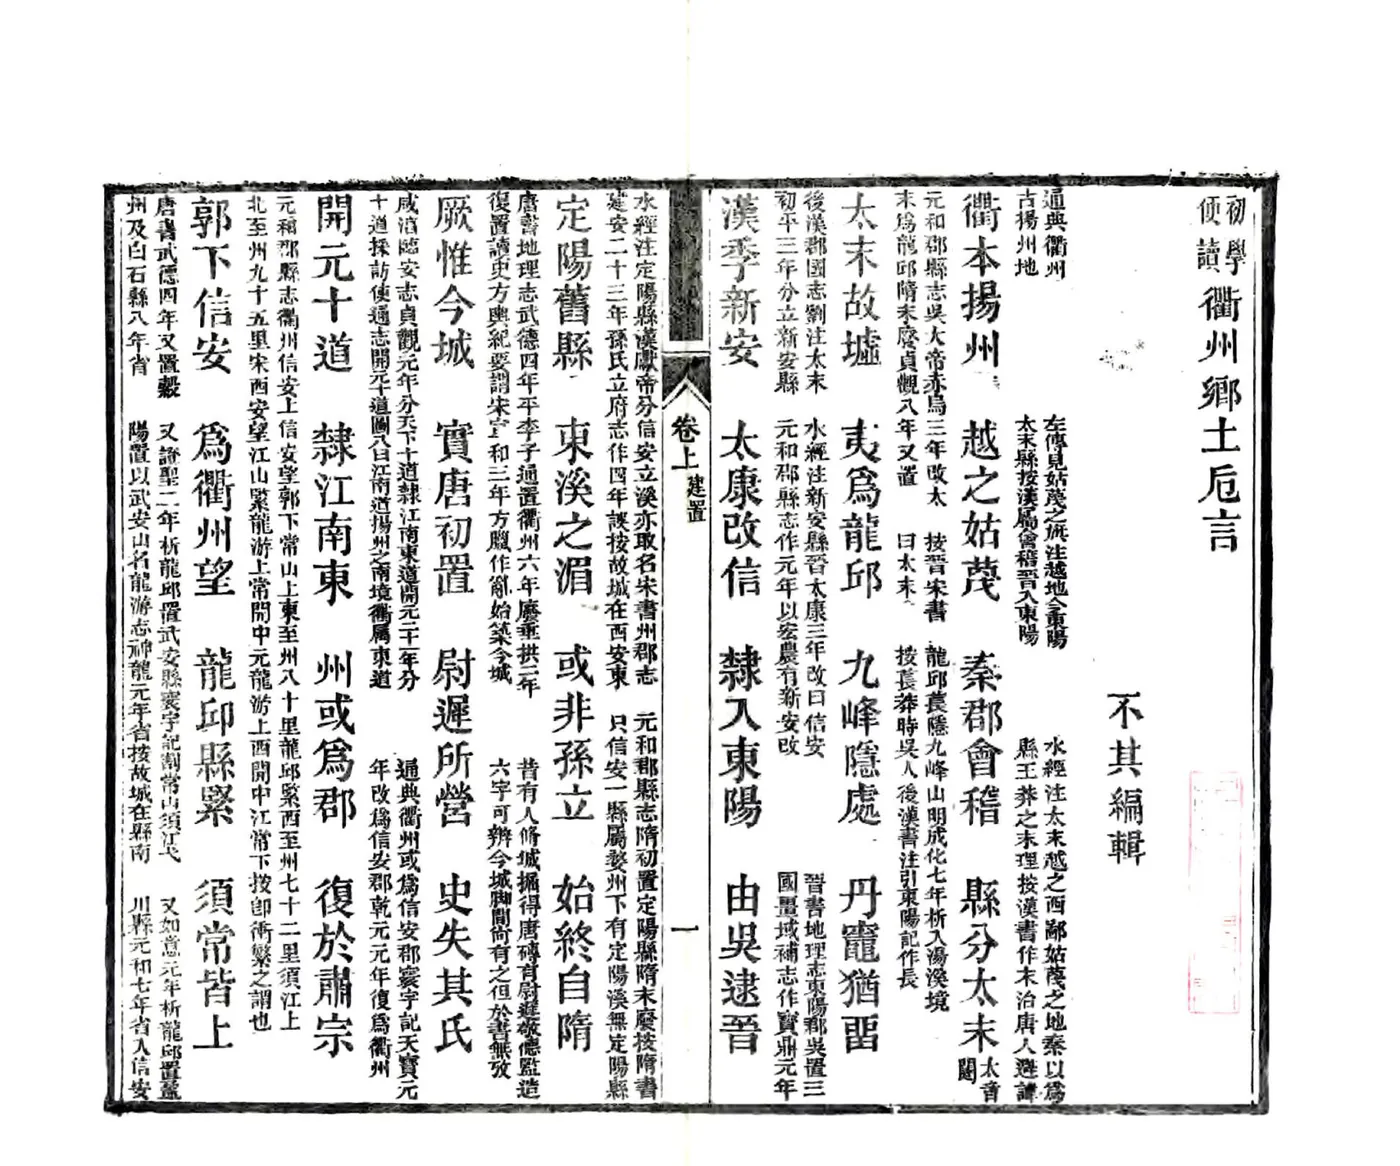 初學
便讀
衢州鄉土卮言
不其編輯
通典衢州
古揚州地
左傳見姑蔑之旗注越地今東陽
太末縣按漢屬會稽晉入東陽
水經注太末越之西鄙姑蔑之地秦以爲
縣王莽之末理按漢書作末治唐人避諱
衢本揚州 越之姑蔑 秦郡會稽 縣分太末
太音
闥
元和郡縣志吳大帝赤烏三年改太
末爲龍邱隋末廢貞觀八年又置
按晉宋書
曰太末
龍邱萇隱九峰山明成化七年析入湯溪境
按萇莽時吳人後漢書注引東陽記作長
太末故墟 夷爲龍邱 九峰隱處 丹竈猶畱
後漢郡國志劉注太末
初平三年分立新安縣
水經注新安縣晉太康三年改曰信安
元和郡縣志作元年以宏農有新安改
晉書地理志東陽郡吳置三
國畺域補志作寶鼎元年
漢季新安 太康改信 隸入東陽 由吳逮晉
卷上 建置 一
水經注定陽縣漢獻帝分信安立溪亦取名宋書州郡志
建安二十三年孫氏立府志作四年誤按故城在西安東
元和郡縣志隋初置定陽縣隋末廢按隋書
只信安一縣屬婺州下有定陽溪無定陽縣
定陽舊縣 東溪之湄 或非孫立 始終自隋
唐書地理志武德四年平李子通置衢州六年廢垂拱二年
復置讀史方輿紀要謂宋宣和三年方臘作亂始築今城
昔有人脩城掘得唐磚有尉遲敬德監造
六字可辨今城脚間尚有之但於書無攷
厥惟今城 實唐初置 尉遲所營 史失其氏
咸淳臨安志貞觀元年分天下十道隸江南東道開元二十一年分
十道採訪使通志開元十道圖八曰江南道揚州之南境衢屬東道
通典衢州或爲信安郡寰宇記天寶元
年改爲信安郡乾元元年復爲衢州
開元十道 隸江南東 州或爲郡 復於肅宗
元和郡縣志衢州信安上信安望郭下常山上東至州八十里龍邱緊西至州七十二里須江上
北至州九十五里宋西安望江山緊龍游上常開中元龍游上西開中江常下按卽衝繁之謂也
郭下信安 爲衢州望 龍邱縣緊 須常皆上
唐書武德四年又置縠
州及白石縣八年省
又證聖二年析龍邱置武安縣寰宇記割常山須江弋
陽置以武安山名龍游志神龍元年省按故城在縣南
又如意元年析龍邱置盈
川縣元和七年省入信安